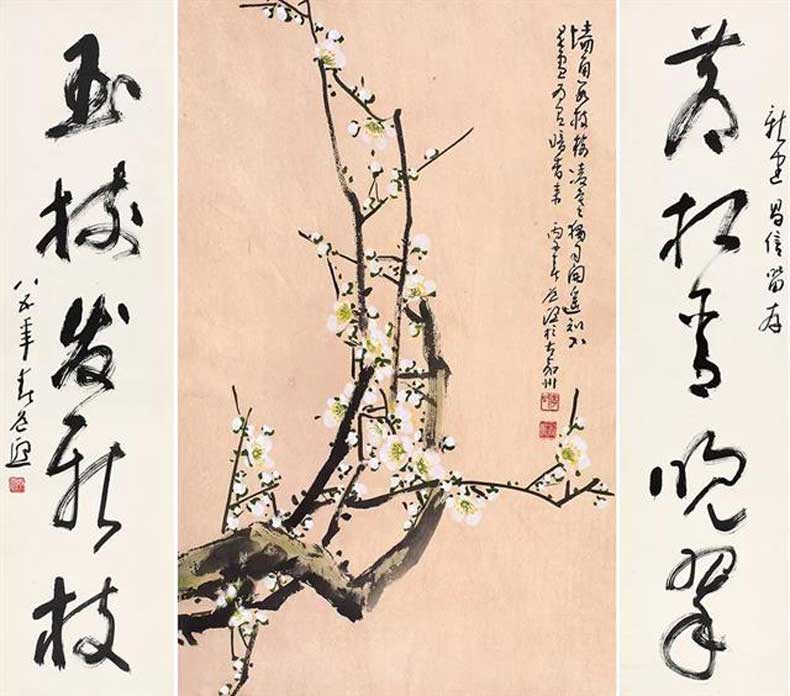 新建昌信留存
苍松含晚翠
墙角数枝梅凌寒独自开遥知不
是雪为有暗香来 丙子春道熙於古嘉州
玉树发新枝
八五年春道熙